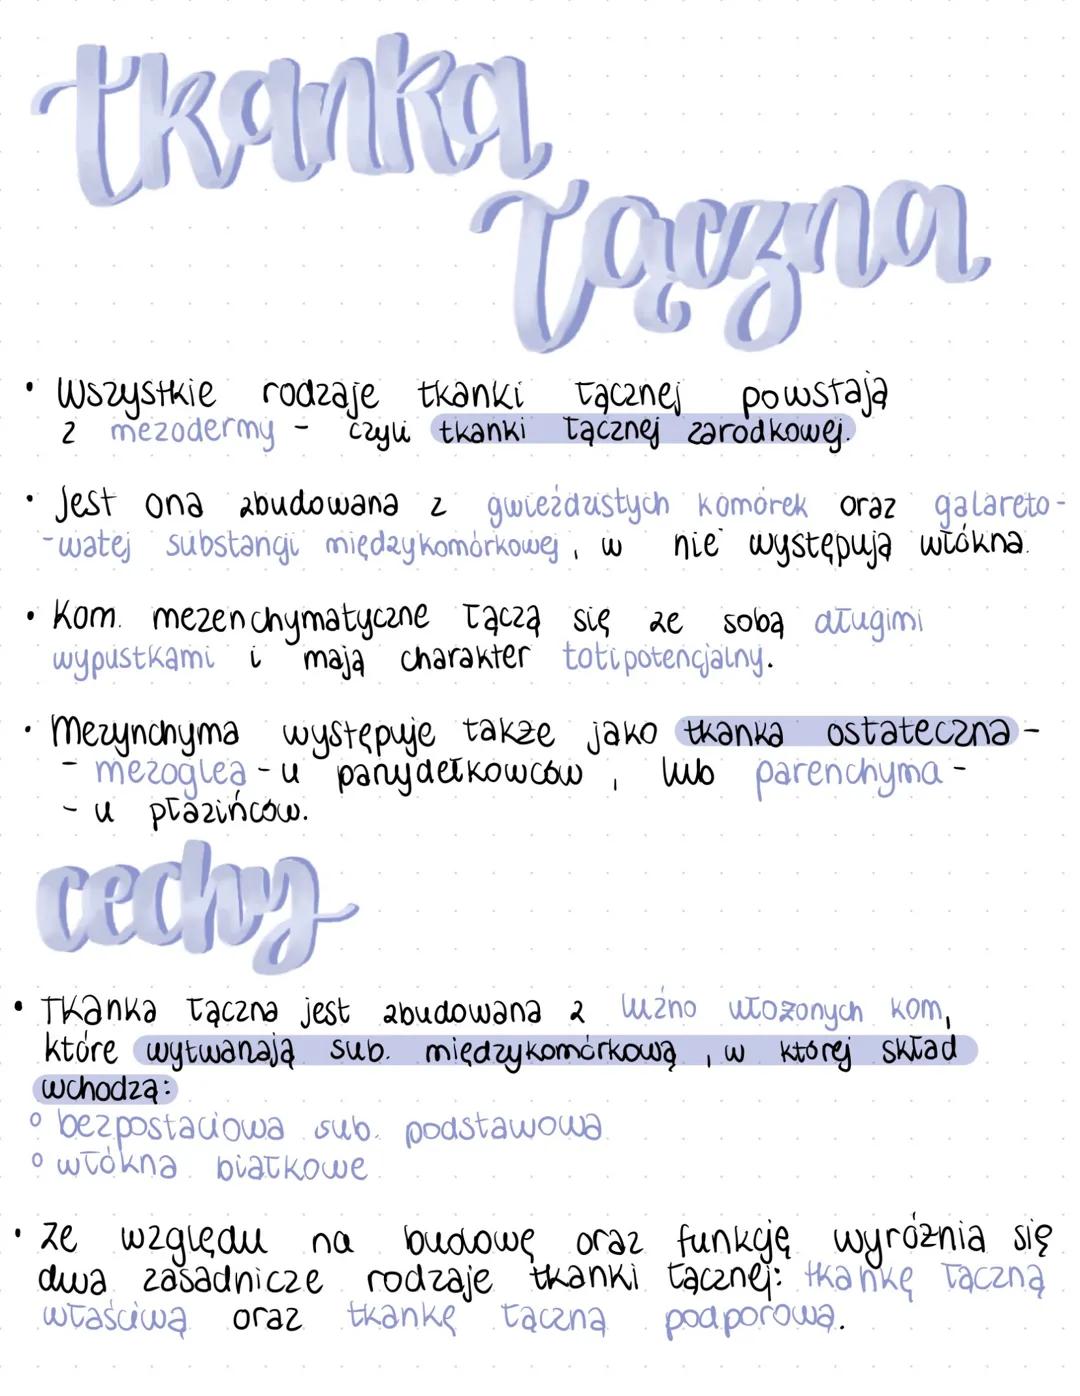 tkanka
łączna
• Wszystkie rodzaje tkanki łącznej powstają
z mezodermy - czyli tkanki łącznej zarodkowej.
• Jest ona zbudowana z gwieździstych komórek oraz galareto-
-watej substancji międzykomórkowej, w nie występują włókna.
• Kom. mezenchymatyczne łączą się ze sobą długimi
wypustkami i mają charakter totipotencjalny.
• Mezynchyma występuje także jako tkanka ostateczna -
- mezoglea - u parzydełkowców, lub parenchyma -
- u płazińców.
cechy
• Tkanka łączna jest zbudowana z luźno ułożonych kom,
które wytwarzają sub. międzykomórkową, w której skład
wchodzą:
° bezpostaciowa sub. podstawowa
° włókna białkowe
• Ze względu na budowę oraz funkcję wyróżnia się
dwa zasadnicze rodzaje tkanki łącznej: tkankę łączną
właściwą oraz tkankę łączną podporową.